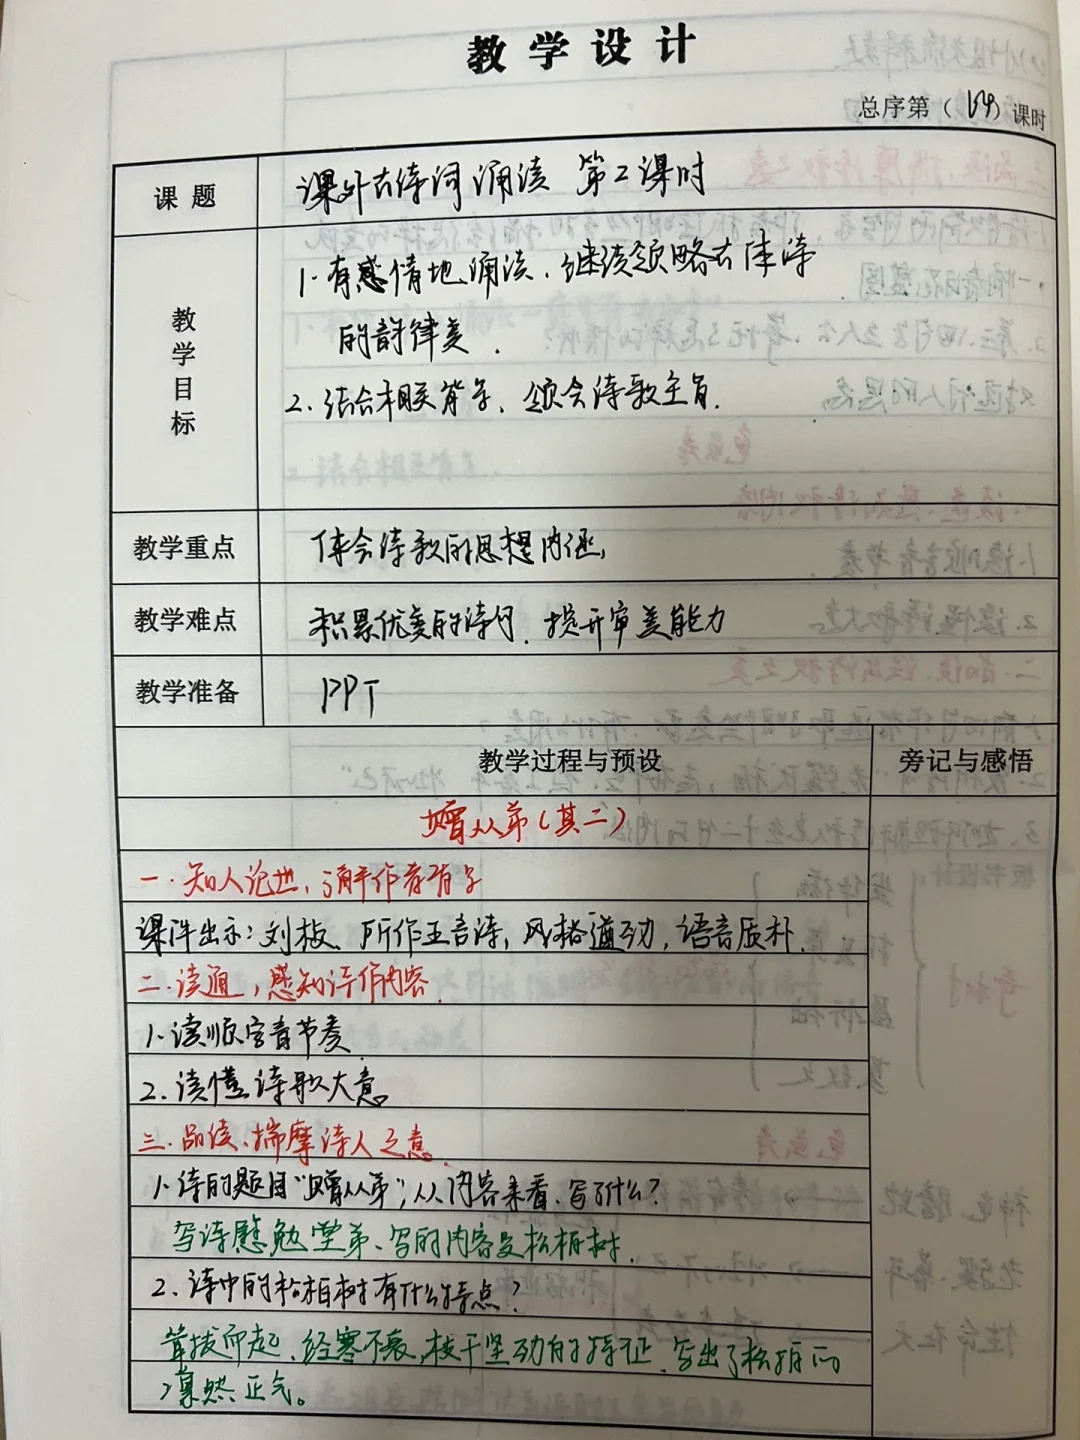 教学设计
总序第（ ）课时
课题
课外古诗词诵读 第2课时
教学目标
1.有感情地诵读、继续领略古体诗
的韵律美.
2.结合相关背景、领会诗歌主旨.
教学重点
体会诗歌的思想内涵,
教学难点
积累优美的诗句、提升审美能力
教学准备
PPT
教学过程与预设
旁记与感悟
赠从弟(其二)
一.知人论世，了解作者背景
课件出示:刘桢、所作五言诗,风格遒劲,语言质朴.
二.读通，感知诗作内容
1.读顺字音节奏
2.读懂诗歌大意
三.品读、揣摩诗人之意.
1.诗的题目"赠从弟",从内容来看、写了什么?
写诗慰勉堂弟、写的内容是松柏树.
2.诗中的松柏树有什么特点?
耸拔而起、经寒不衰,枝干坚劲的特征、写出了松柏的
凛然正气。